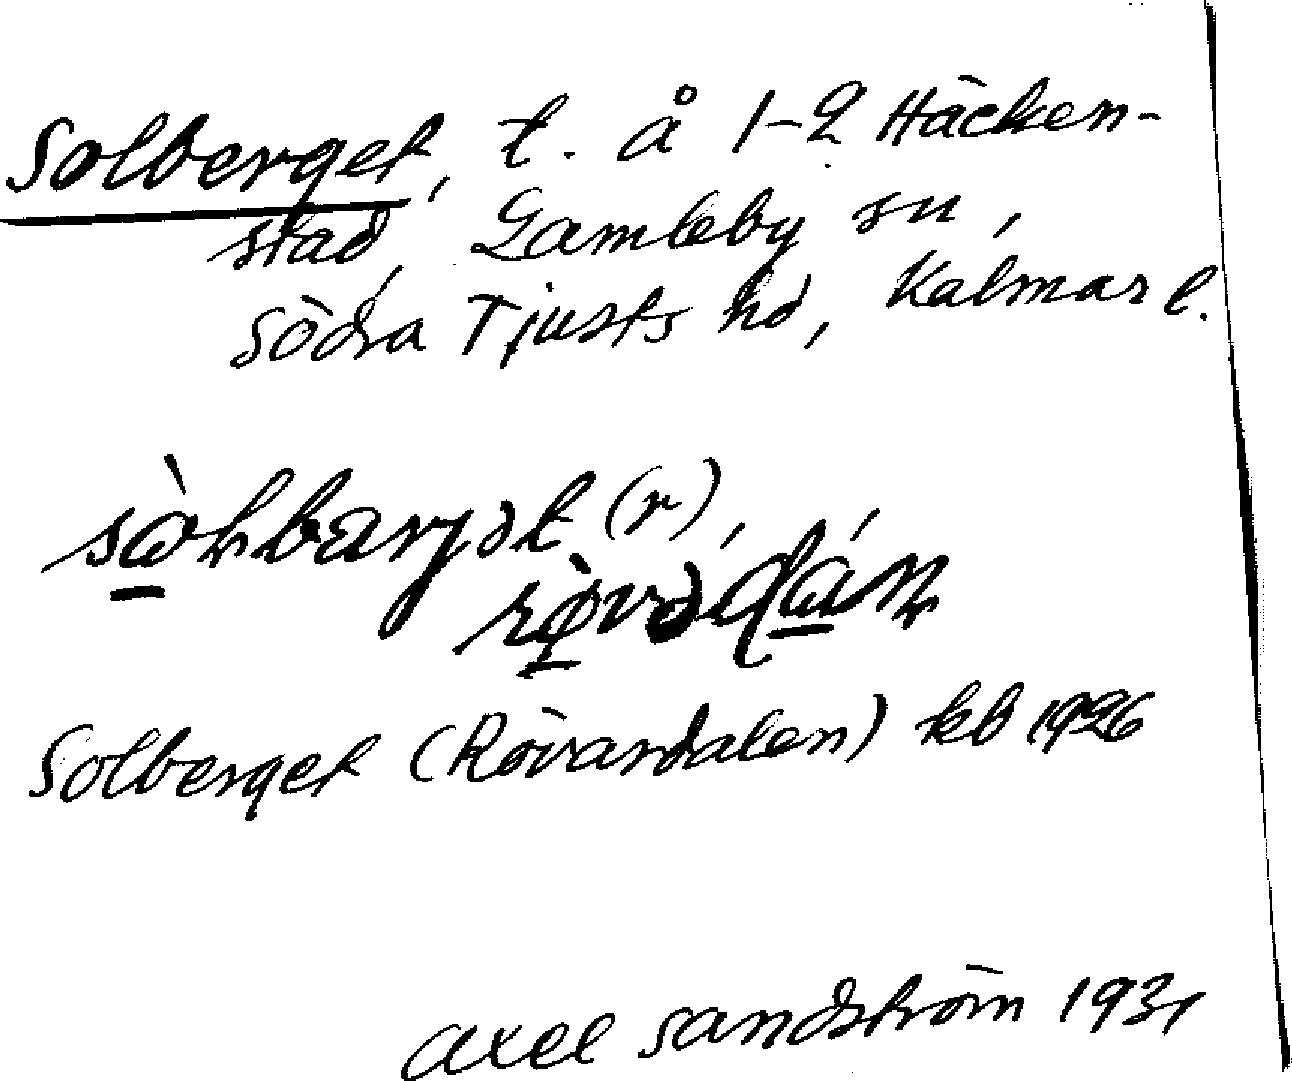 Solberget, t. å 1-2 Häcken-
stad, Gamleby sn,
Södra Tjusts hd, Kalmar l.
Solberget (Rövardalen) kb 1926
Axel Sandström 1931